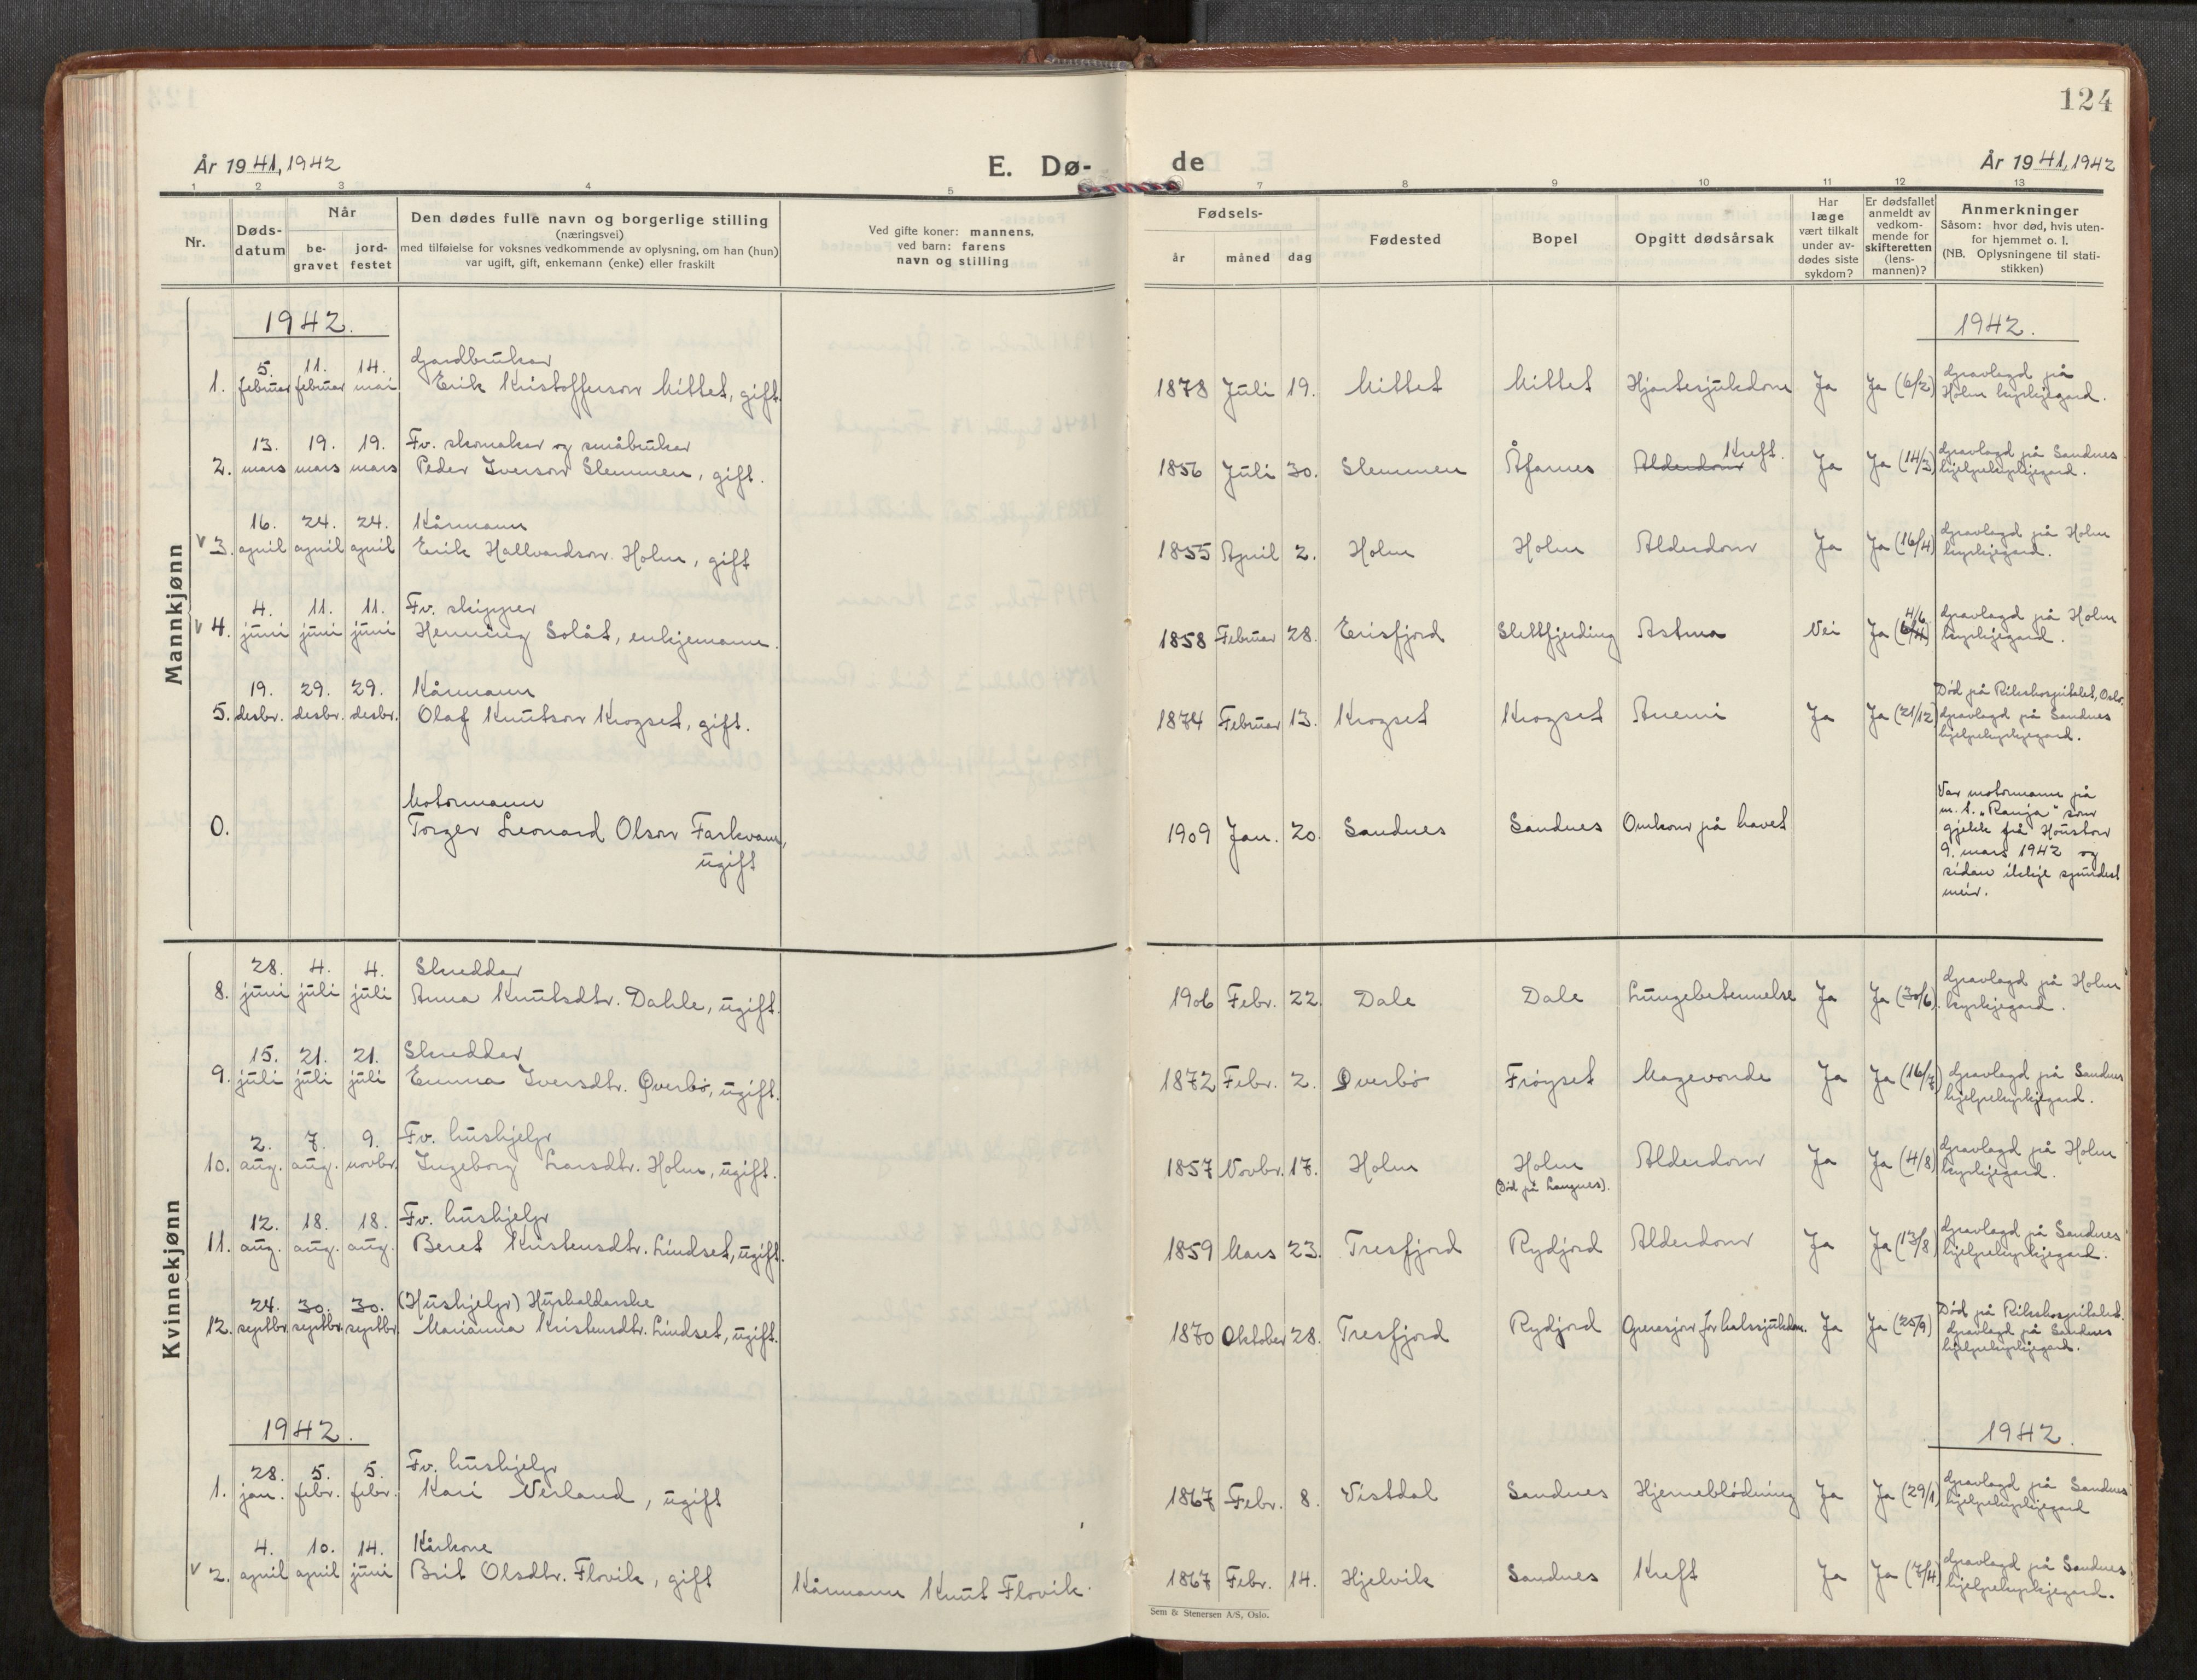 124
År 1941, 1942
E. Dø-
de
År 1941, 1942
1 2 3 4 5 7 8 9 10 11 12 13
Nr.
Døds-
datum
Når
be-
gravet
jord-
festet
Den dødes fulle navn og borgerlige stilling
(næringsvei)
med tilføielse for voksnes vedkommende av oplysning, om han (hun)
var ugift, gift, enkemann (enke) eller fraskilt
Ved gifte koner: mannens,
ved barn: farens
navn og stilling
Fødsels-
år måned dag
Fødested
Bopel
Opgitt dødsårsak
Har
læge
vært tilkalt
under av-
dødes siste
sykdom?
Er dødsfallet
anmeldt av
vedkom-
mende for
skifteretten
(lens-
mannen)?
Anmerkninger
Såsom: hvor død, hvis uten-
for hjemmet o. l.
(NB. Oplysningene til stati-
stikken)
Mannkjønn
1942.
1942.
5. 11. 14. Gardbrukar
1. februar februar mai Erik Kristofferson Mittet, gift.
1878 Juli 19. Mittet Mittet Hjartesjukdom Ja Ja (6/2)
Gravlagd på
Holm kyrkjegard.
13. 19. 19. Fv. skomakar og småbrukar
2. mars mars mars Peder Iverson Slemmen, gift.
1856 Juli 30. Slemmen Åfarnes Alderdom Kreft. Ja Ja (14/3)
Gravlagd på Sandnes
hjelpekyrkjegard.
16. 24. 24. Kårmann
v 3. april april april Erik Hallvardson Holm, gift
1855 April 2. Holm Holm Alderdom Ja Ja (16/4)
Gravlagd på Holm
kyrkjegard.
4. 11. 11. Fv. skipper
v 4. juni juni juni Henning Solåt, enkjemann.
1858 Februar 28. Erisfjord Slettfjerding Astma Nei Ja (4/6)
Gravlagd på Holm
kyrkjegard.
19. 29. 29. Kårmann
5. desbr. desbr. desbr. Olaf Knutson Krogset, gift.
1874 Februar 13. Krogset Krogset Anemi Ja Ja (21/12)
Død på Rikshospitalet, Oslo.
Gravlagd på Sandnes
hjelpekyrkjegard.
Motormann
0. Torger Leonard Olson Farkvam,
ugift
1909 Jan. 20. Sandnes Sandnes Omkom på havet
Var motormann på
m. t. "Ranja" som
gjekk frå Houston
9. mars 1942 og
sidan ikkje spurdest
meir.
Kvinnekjønn
28. 4. 4. Skreddar
8. juni juli juli Anna Knutsdtr. Dahle, ugift.
1906 Febr. 22. Dale Dale Lungebetennelse Ja Ja (30/6).
Gravlagd på Holm
kyrkjegard.
15. 21. 21. Skreddar
9. juli juli juli Emma Iversdtr. Överbö, ugift.
1872 Febr. 2. Överbö Fröyset Magevonde Ja Ja (16/7)
Gravlagd på Sandnes
hjelpekyrkjegard.
2. 7. 9. Fv. hushjelp
10. aug. aug. novbr. Ingeborg Larsdtr. Holm, ugift.
1857 Novbr. 17. Holm Holm Alderdom Ja Ja (4/8)
(Död på Langnes).
Gravlagd på Holm
kyrkjegard.
12. 18. 18. Fv. hushjelp
11. aug. aug. aug. Beret Kristensdtr. Lindset, ugift.
1859 Mars 23. Tresfjord Rydjord Alderdom Ja Ja (13/8)
Gravlagd på Sandnes
hjelpekyrkjegard.
24. 30. 30. (Hushjelp) Husholderske
12. septbr. septbr. septbr. Marianna Kristensdtr. Lindset, ugift.
1870 Oktober 28. Tresfjord Rydjord Operasjon for halssjukdom. Ja Ja (25/9)
Død på Rikshospitalet.
Gravlagd på Sandnes
hjelpekyrkjegard.
1942.
1942.
28. 5. 5. Fv. hushjelp
1. jan. febr. febr. Kari Verland, ugift
1867 Febr. 8. Vistdal Sandnes Hjerneblödning Ja Ja (29/1)
Gravlagd på Sandnes
hjelpekyrkjegard
4. 10. 14. Kårkone
v 2. april april juni Brit Olsdtr. Flovik, gift Kårmann Knut Flovik.
1867 Febr. 14. Hjelvik Sandnes Kreft Ja Ja (7/4)
Gravlagd på Sandnes
hjelpekyrkjegard.
Sem & Stenersen A/S, Oslo.